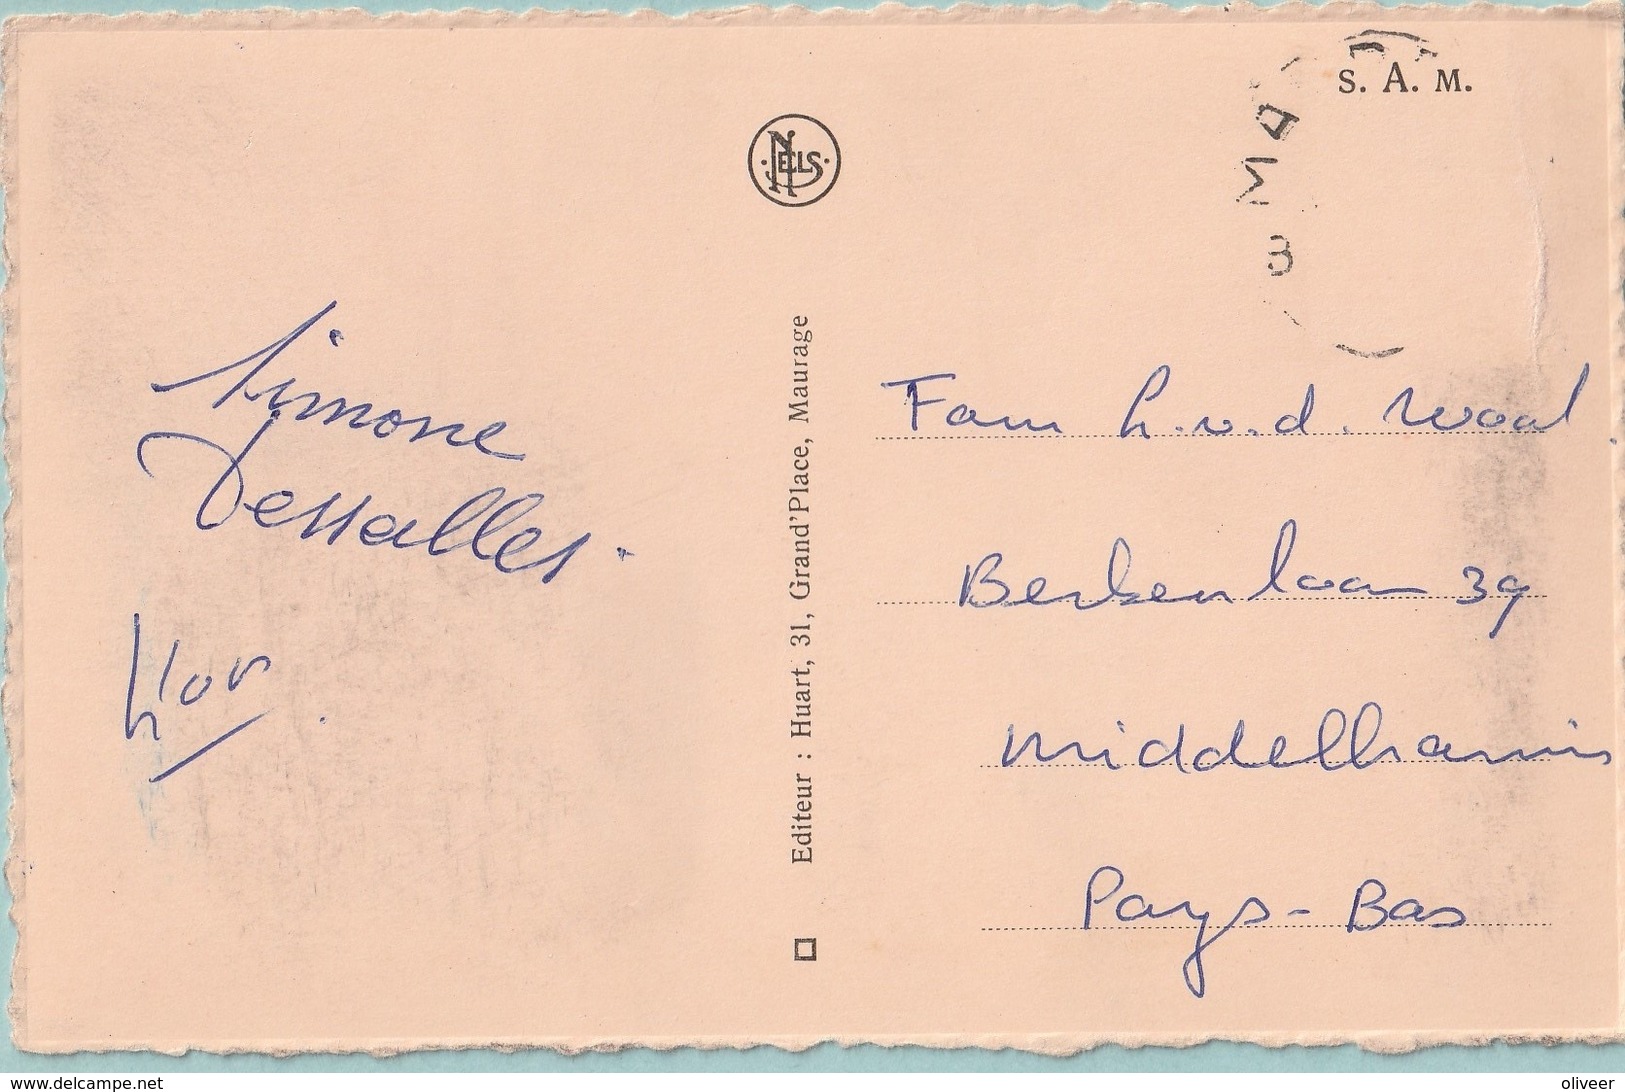 S. A. M.
NELS
Simone
Dessalles.
Editeur : Huart, 31, Grand'Place, Maurage
Fam h.v.d. Waal.
Berkenlaan 39
Middelharnis
Pays-Bas
www.delcampe.net
oliveer